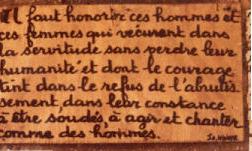 Il faut honorer ces hommes et
ces femmes qui vécurent dans
la servitude sans perdre leur
humanité et dont le courage
tint dans le refus de l'abrutis-
sement, dans leur constance
à être soudés, à agir et chanter
comme des hommes.